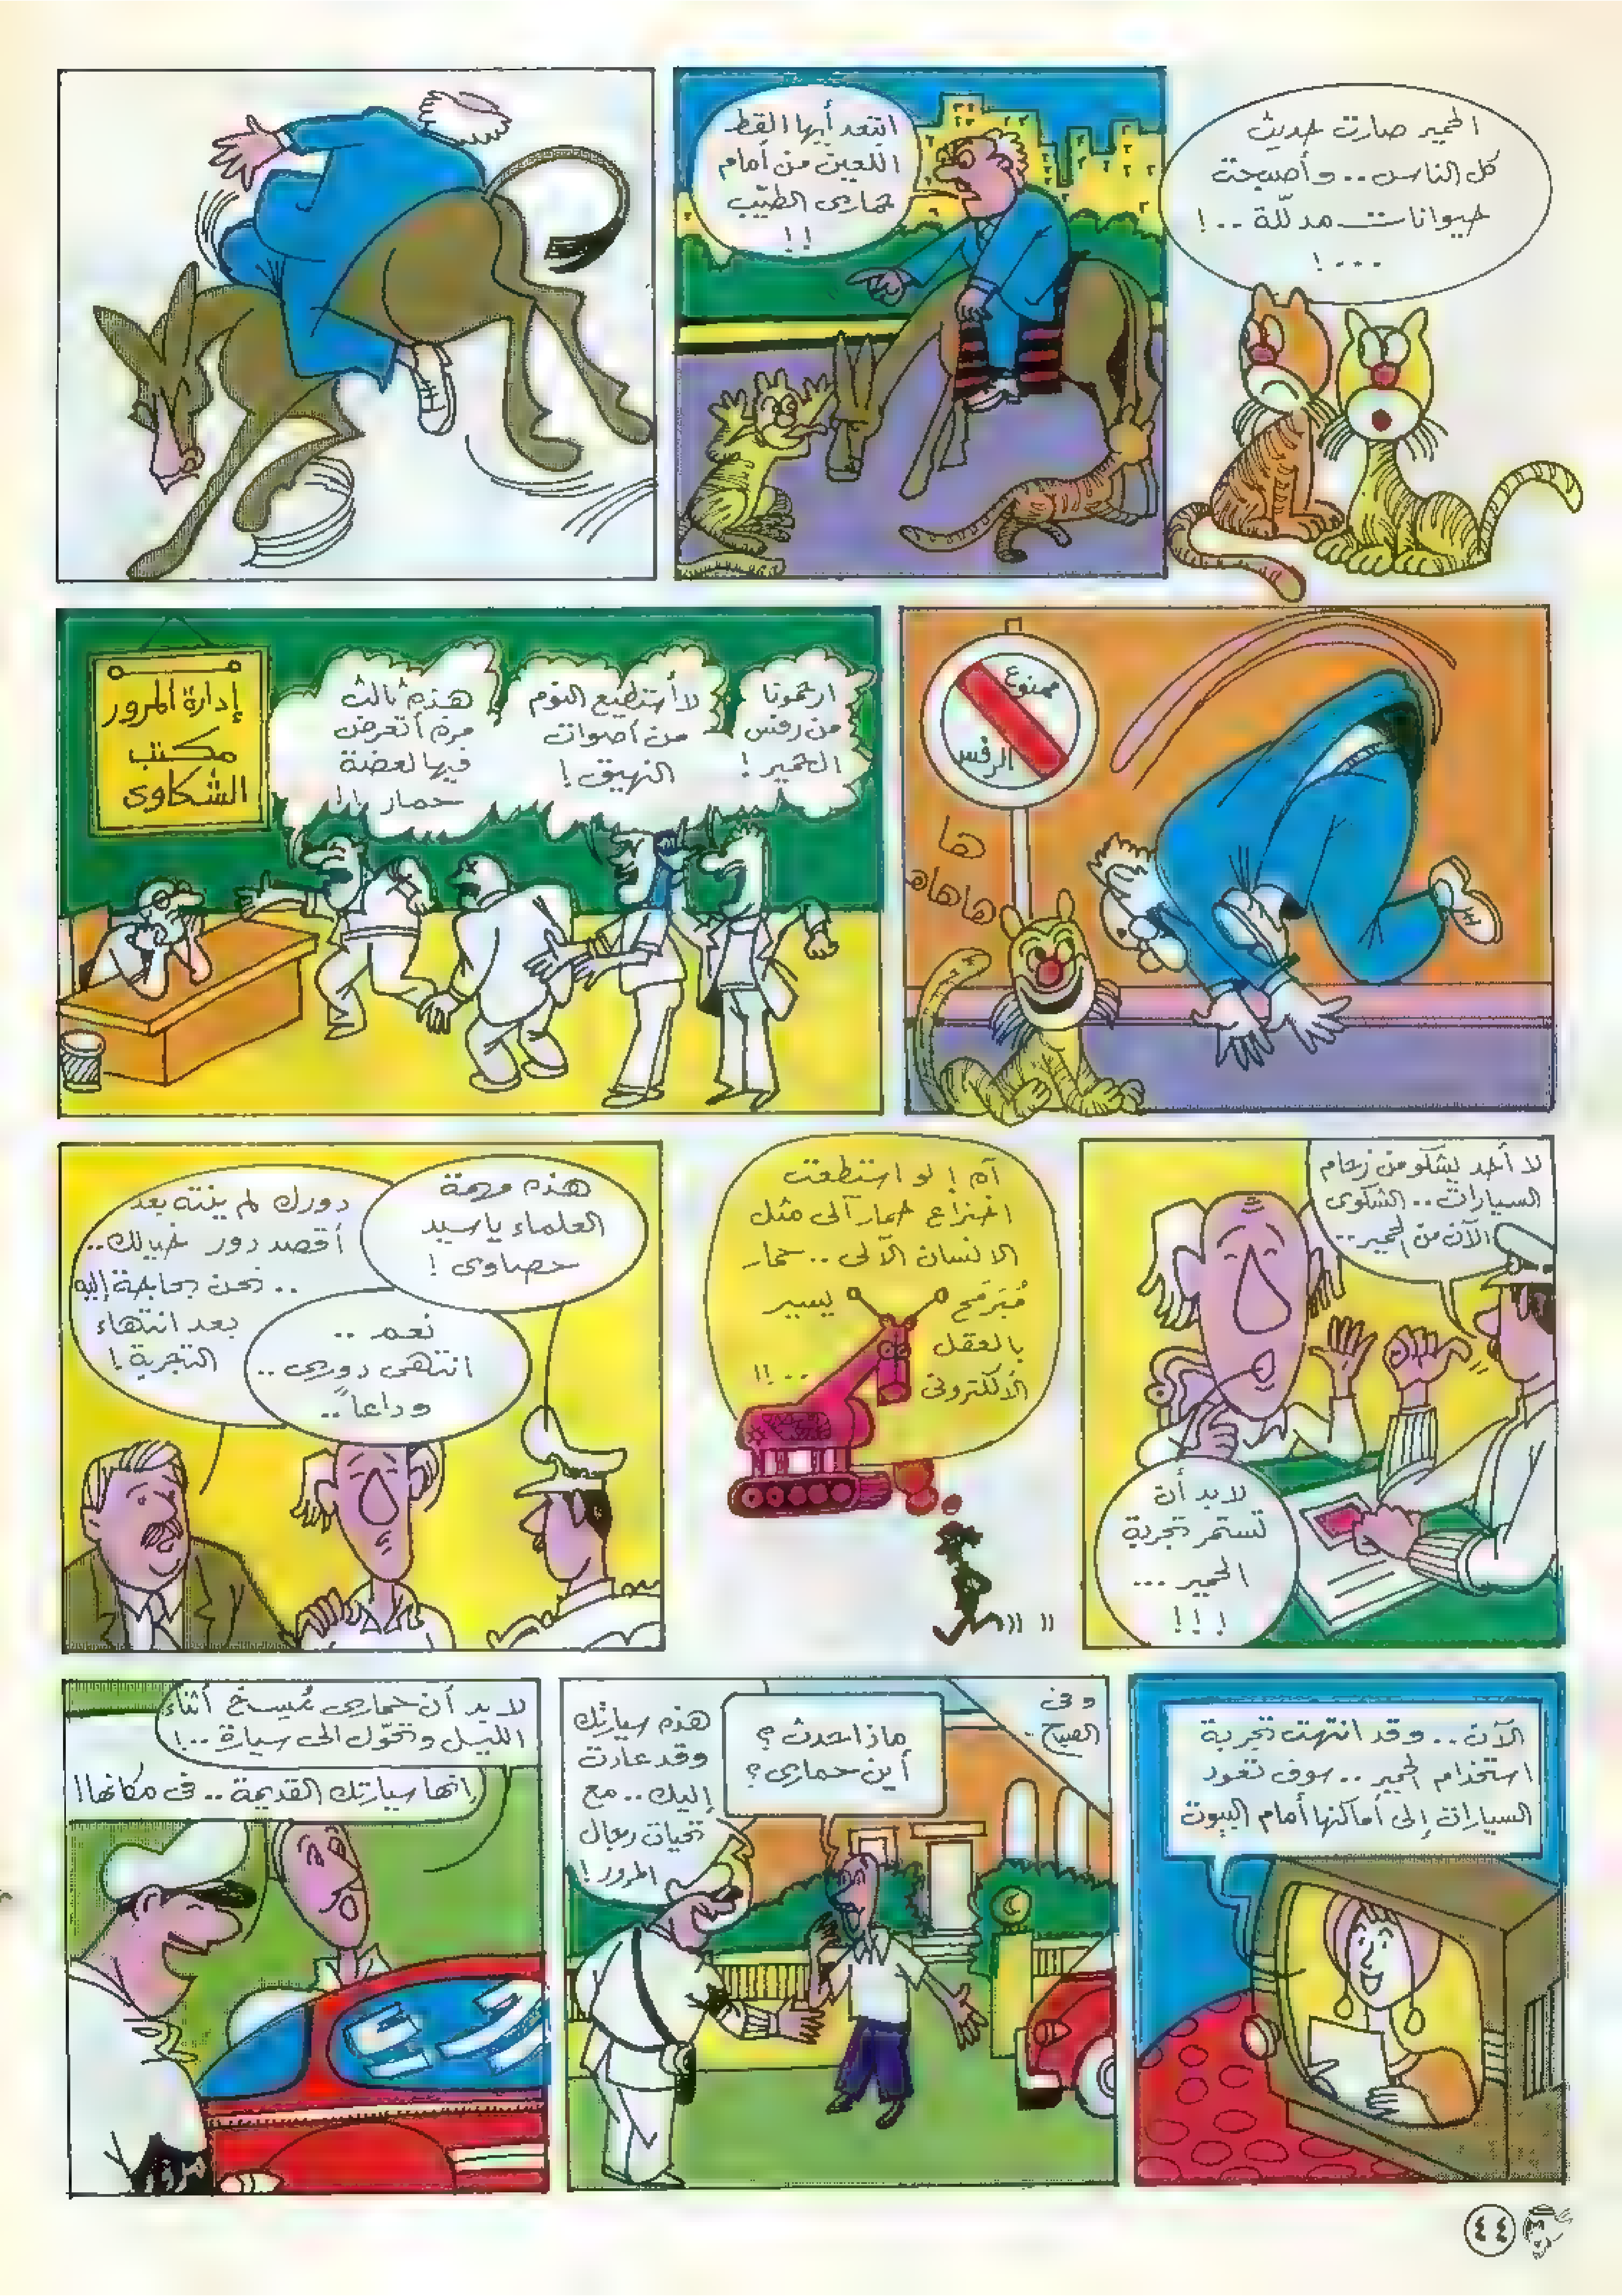 الحمير صارت حديث
كل الناس.. وأصبحت
حيوانات مدللّة ..!
...!
ابتعد أيها القط
اللعين من أمام
حمارى الطيّب
!!
ممنوع
الرفس
ها
هاهاها
ارحمونا
من رفس
الحمير!
لا أستطيع النوم
من أصوات
النهيق!
هذه ثالث
مرة أتعرض
فيها لعضة
حمار!!
إدارة المرور
مكتب
الشكاوى
لا أحد يشكو من زحام
السيارات.. الشكوى
الآن من الحمير..
لابد أن
تستمر تجربة
الحمير...
!!!
آه! لو استطعت
اختراع حمار آلى مثل
الانسان الآلى.. حمار
مُبَرمَج يسير
بالعقل
الالكترونى ...!!
هذه مهمة
العلماء يا سيد
حصاوى!
دورك لم ينته بعد
أقصد دور خيالك..
.. نحن بحاجة إليه
بعد انتهاء
التجربة!
نعم..
انتهى دورى..
وداعاً..
الآن.. وقد انتهت تجربة
استخدام الحمير.. سوف تعود
السيارات إلى أماكنها أمام البيوت
وفى
الصباح..
ماذا حدث؟
أين حمارى؟
هذه سيارتك
وقد عادت
إليك.. مع
تحيات رجال
المرور!
لابد أن حمارى مُسِخَ أثناء
الليل وتحوّل الى سيارة..!
انها سيارتك القديمة.. فى مكانها!
٤٤